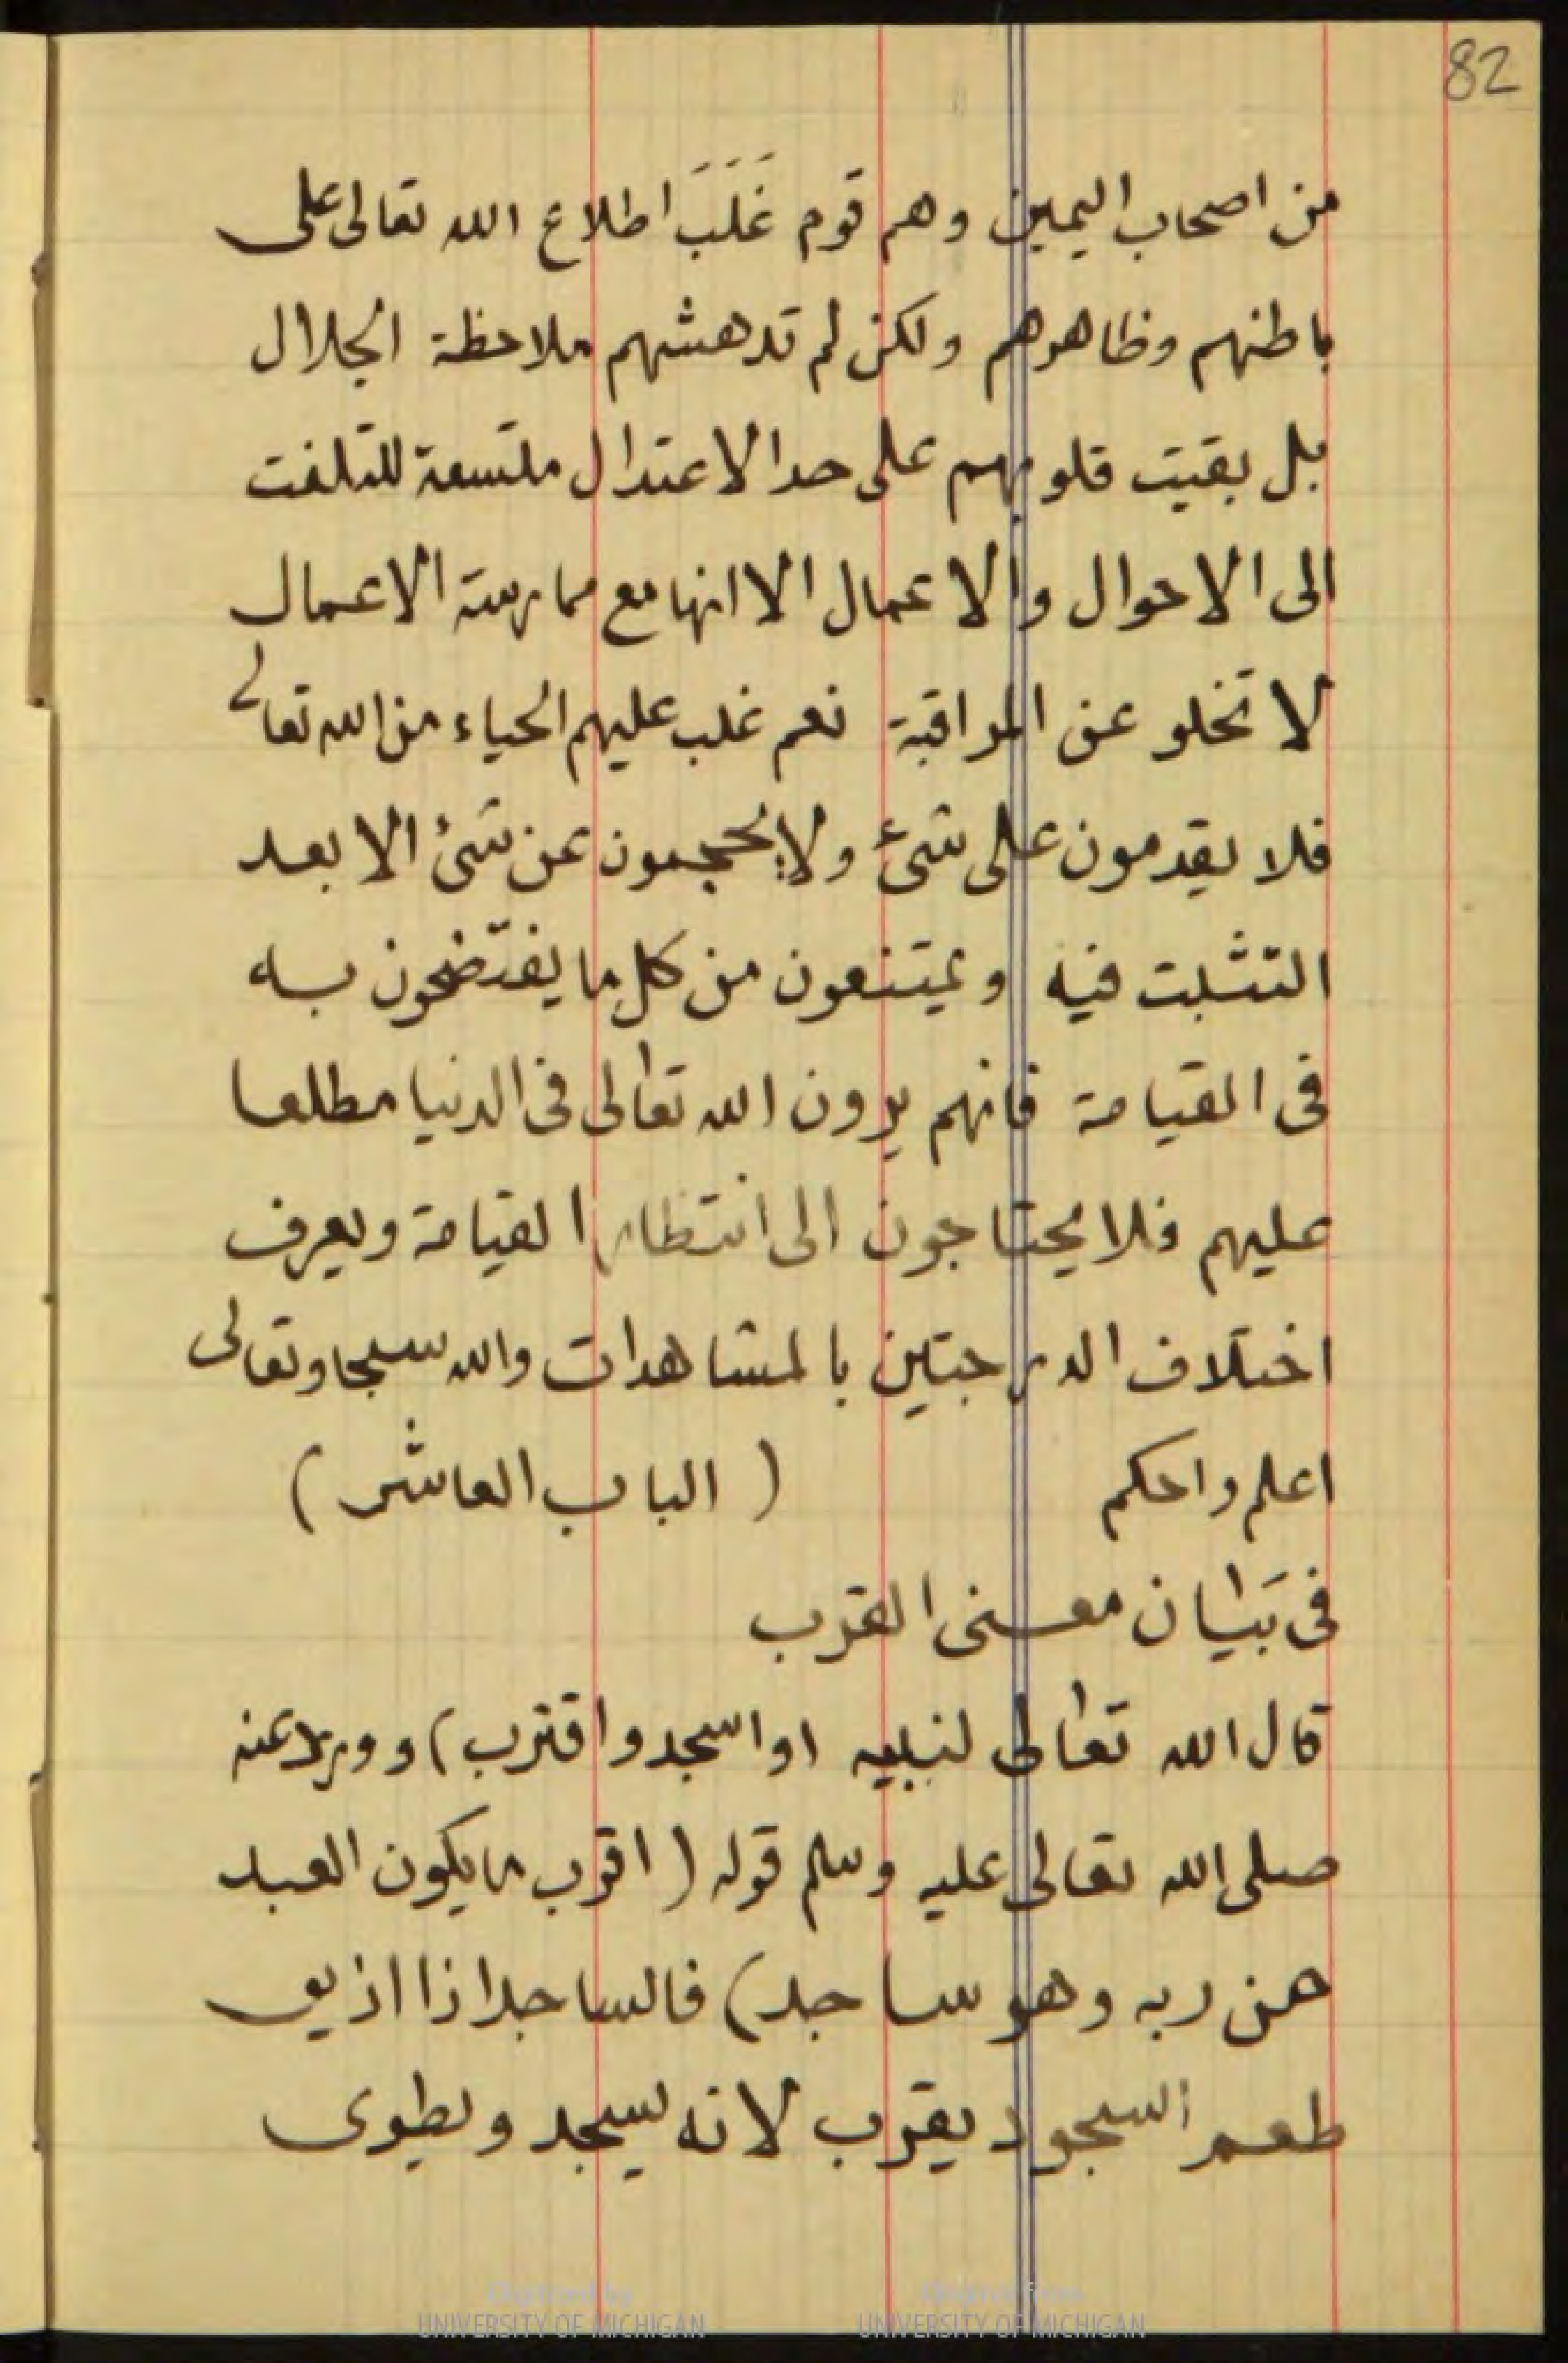 82
من اصحاب اليمين وهم قوم غَلَبَ اطلاع الله تعالى على
باطنهم وظاهرهم ولكن لم تدهشهم ملاحظة الجلال
بل بقيت قلوبهم على حد الاعتدال متسعة للتلفت
الى الاحوال والاعمال الا انها مع ممارسة الاعمال
لا تخلو عن المراقبة نعم غلب عليهم الحياء من الله تعالى
فلا يقدمون على شئ ولا يحجمون عن شئ الا بعد
التثبت فيه ويمتنعون من كل ما يفتضحون به
فى القيامة فانهم يرون الله تعالى فى الدنيا مطلعا
عليهم فلا يحتاجون الى انتظار القيامة ويعرف
اختلاف الدرجتين بالمشاهدات والله سبحا وتعالى
اعلم واحكم ( الباب العاشر )
فى بَيان معنى القرب
قال الله تعالى لنبيه (واسجد واقترب) وورد عنه
صلى الله تعالى عليه وسلم قوله (اقرب ما يكون العبد
من ربه وهو ساجد) فالساجد اذا اذيق
طعم السجود يقرب لانه يسجد ويطوى
Digitized by
UNIVERSITY OF MICHIGAN
Original from
UNIVERSITY OF MICHIGAN